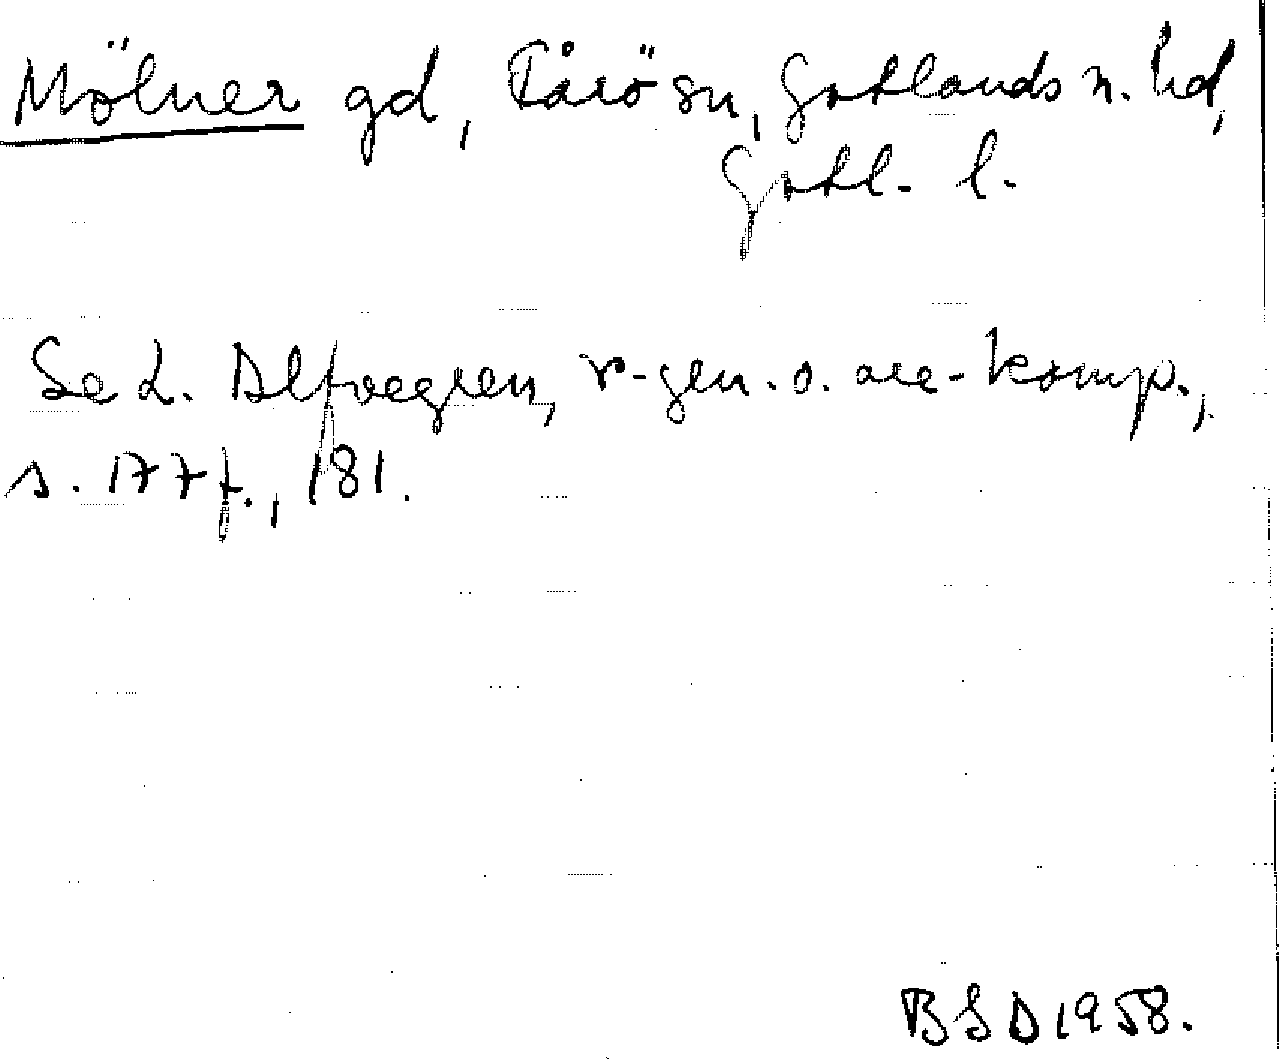 Mölner gd, Fårö sn, Gotlands n. hd,
Gotl. l.
Se L. Alfvegren, r-gen. o. are-komp.,
s. 177 f., 181.
BSD 1958.